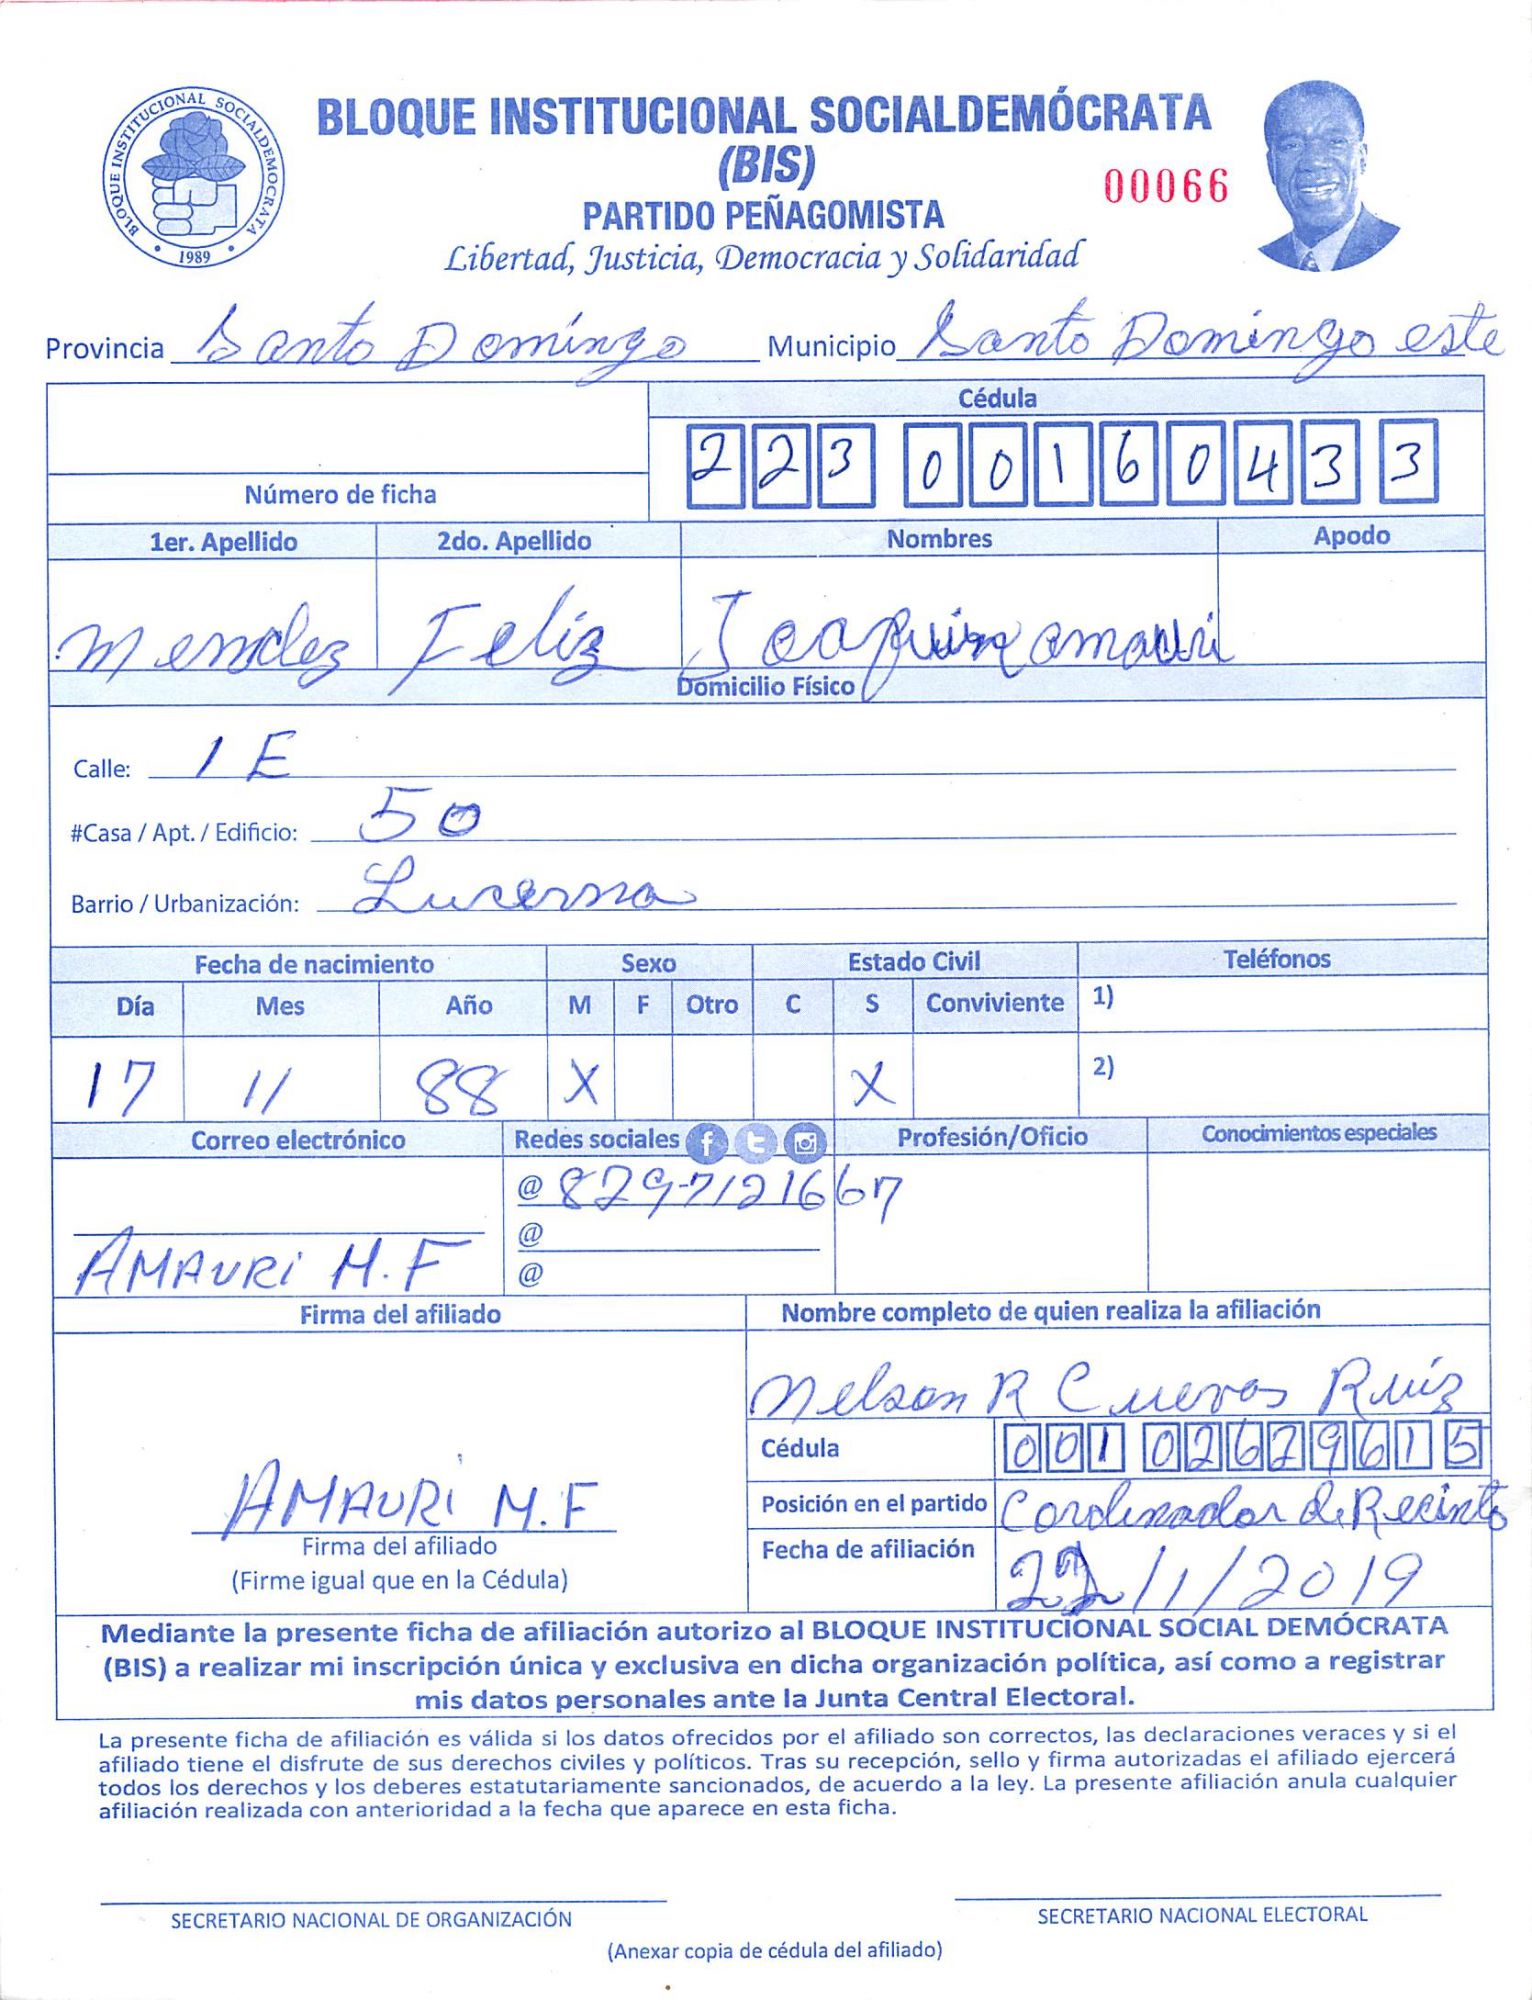 BLOQUE INSTITUCIONAL SOCIALDEMOCRATA
1989
BLOQUE INSTITUCIONAL SOCIALDEMÓCRATA
(BIS)
00066
PARTIDO PEÑAGOMISTA
Libertad, Justicia, Democracia y Solidaridad
Provincia Santo Domingo Municipio Santo Domingo este
Cédula
223 0016043 3
Número de ficha
1er. Apellido 2do. Apellido Nombres Apodo
Mendez Feliz Joaquin amauri
Domicilio Físico
Calle: 1 E
#Casa / Apt. / Edificio: 50
Barrio / Urbanización: Lucerna
Fecha de nacimiento Sexo Estado Civil Teléfonos
Día Mes Año M F Otro C S Conviviente 1)
17 11 88 X X 2)
Correo electrónico Redes sociales Profesión/Oficio Conocimientos especiales
@ 829-7121667
@
AMAURI M.F @
Firma del afiliado Nombre completo de quien realiza la afiliación
Nelson R Cuevas Ruiz
Cédula 001 0267961 5
Posición en el partido Cordenador de Recinto
AMAURI M.F
Firma del afiliado
(Firme igual que en la Cédula)
Fecha de afiliación 22/1/2019
Mediante la presente ficha de afiliación autorizo al BLOQUE INSTITUCIONAL SOCIAL DEMÓCRATA
(BIS) a realizar mi inscripción única y exclusiva en dicha organización política, así como a registrar
mis datos personales ante la Junta Central Electoral.
La presente ficha de afiliación es válida si los datos ofrecidos por el afiliado son correctos, las declaraciones veraces y si el
afiliado tiene el disfrute de sus derechos civiles y políticos. Tras su recepción, sello y firma autorizadas el afiliado ejercerá
todos los derechos y los deberes estatutariamente sancionados, de acuerdo a la ley. La presente afiliación anula cualquier
afiliación realizada con anterioridad a la fecha que aparece en esta ficha.
SECRETARIO NACIONAL DE ORGANIZACIÓN SECRETARIO NACIONAL ELECTORAL
(Anexar copia de cédula del afiliado)